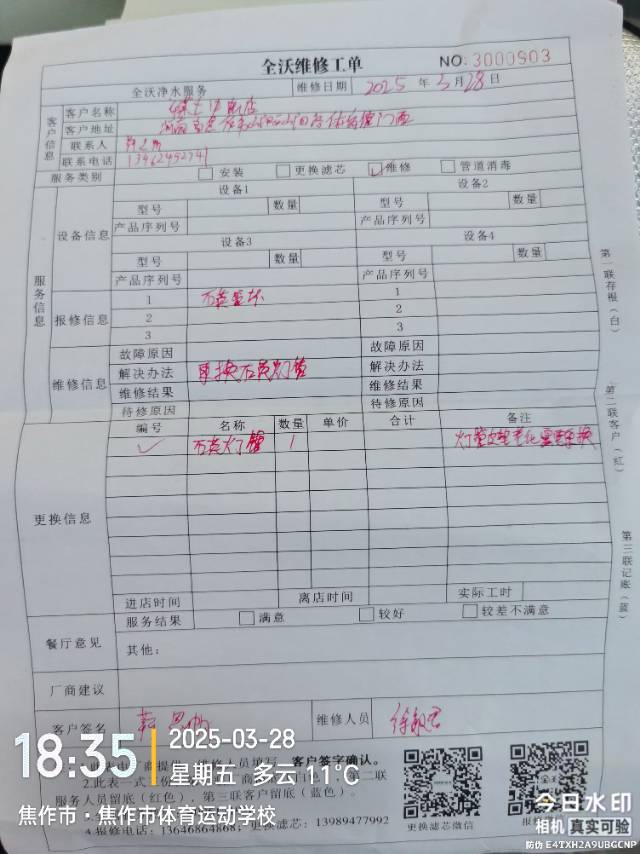 全沃维修工单
NO: 3000903
全沃净水服务 维修日期 2025 年 3 月 28 日
客户信息
客户名称
客户地址
联系人
联系电话 13462492741
服务类别 安装 更换滤芯 ✓ 维修 管道消毒
服务信息
设备信息
设备1 设备2
型号 数量 型号 数量
产品序列号 产品序列号
设备3 设备4
型号 数量 型号 数量
产品序列号 产品序列号
报修信息
1 1
2 2
3 3
维修信息
故障原因 故障原因
解决办法 更换石英灯管 解决办法
维修结果 维修结果
待修原因 待修原因
更换信息
编号 名称 数量 单价 合计 备注
✓ 石英灯管 1 灯管
进店时间 离店时间 实际工时
餐厅意见
服务结果 满意 较好 较差不满意
其他:
厂商建议
客户签名 维修人员
客户签字确认。
2.此表一式
服务人员留底（红色）、第三联客户留底（蓝色）。
4.报修电话：13646864868; 更换滤芯：13989477992
更换滤芯微信
第一联存根（白）
第二联客户（红）
第三联记账（蓝）
18:35
2025-03-28
星期五 多云 11°C
焦作市·焦作市体育运动学校
今日水印
相机 真实可验
防伪 E4TXH2A9UBGCNP